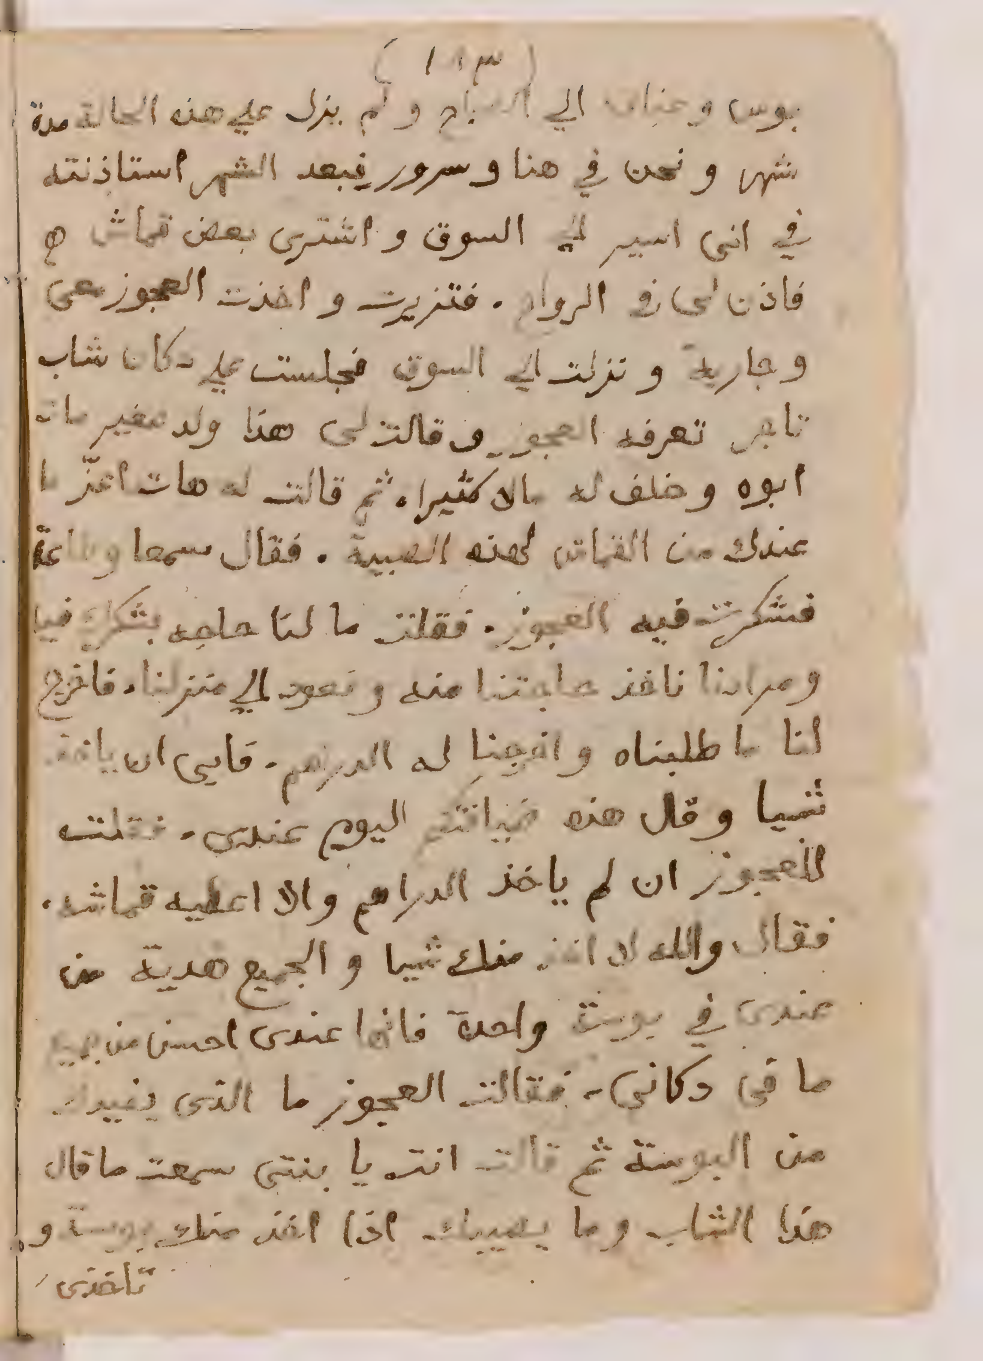 (١٨٣)
بوس وعناق الي الصباح ولم نزل علي هذه الحالة مدة
شهر ونحن في هنا وسرور فبعد الشهر استاذنته
في انى اسير الي السوق واشترى بعض قماش
فاذن لى في الرواح. فتزيرت واخذت العجوز معى
وجارية ونزلت الي السوق فجلست علي دكان شاب
تاجر تعرفه العجوز وقالت لى هذا ولد صغير مات
ابوه وخلف له مالا كثيرا. ثم قالت له هات اعزّ ما
عندك من القماش لهذه الصبية. فقال سمعا وطاعة
فشكرت فيه العجوز. فقلت ما لنا حاجه بشكرك فيه
ومرادنا ناخذ حاجتنا منه ونعود الي منزلنا. فاخرج
لنا ما طلبناه واخرجنا له الدراهم. فابى ان ياخذ
شيا وقال هذه ضيافتكم اليوم عندى. فقلت
للعجوز ان لم ياخذ الدراهم والا اعطيه قماشه.
فقال والله لا اخذ منك شيا والجميع هدية من
عندى في بوسة واحدة فانها عندى احسن من جميع
ما فى دكانى. فقالت العجوز ما الذى يفيدك
من البوسة ثم قالت انت يا بنتى سمعت ما قال
هذا الشاب وما يصيبك اذا اخذ منك بوسة و
تاخذى